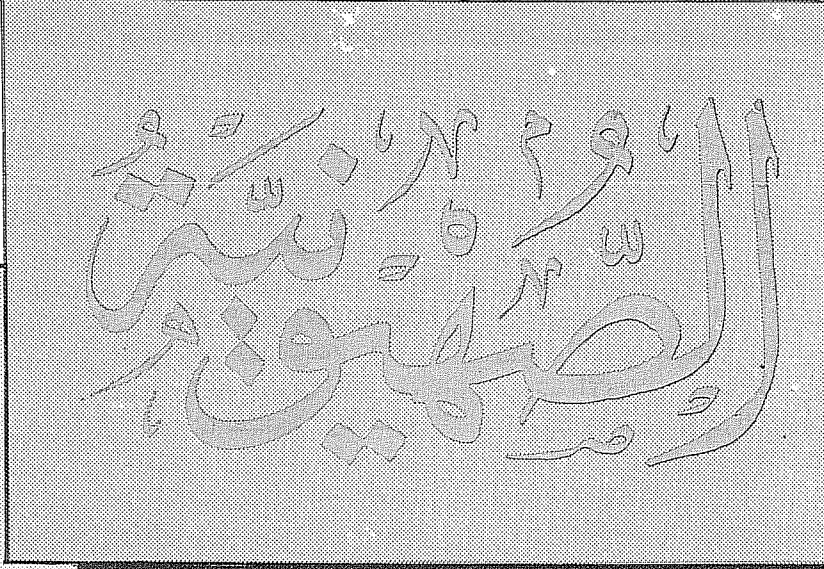 الصهيونية